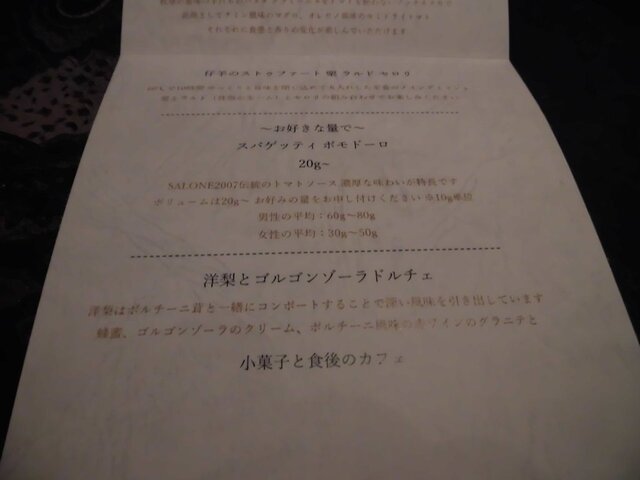 続としてクミン風味のマグロ、オレガノ風味のセミドライトマト
それぞれに食感と香りの変化が楽しんでいただけます
仔羊のストゥファート 栗 ラルド セロリ
～お好きな量で～
スパゲッティ ポモドーロ
20g~
SALONE2007伝統のトマトソース 濃厚な味わいが特長です
ボリュームは20g～ お好みの量をお申し付けください ※10g単位
男性の平均：60g～80g
女性の平均：30g～50g
洋梨とゴルゴンゾーラドルチェ
洋梨はポルチーニ茸と一緒にコンポートすることで深い風味を引き出しています
蜂蜜、ゴルゴンゾーラのクリーム、ポルチーニ風味の赤ワインのグラニテと
小菓子と食後のカフェ